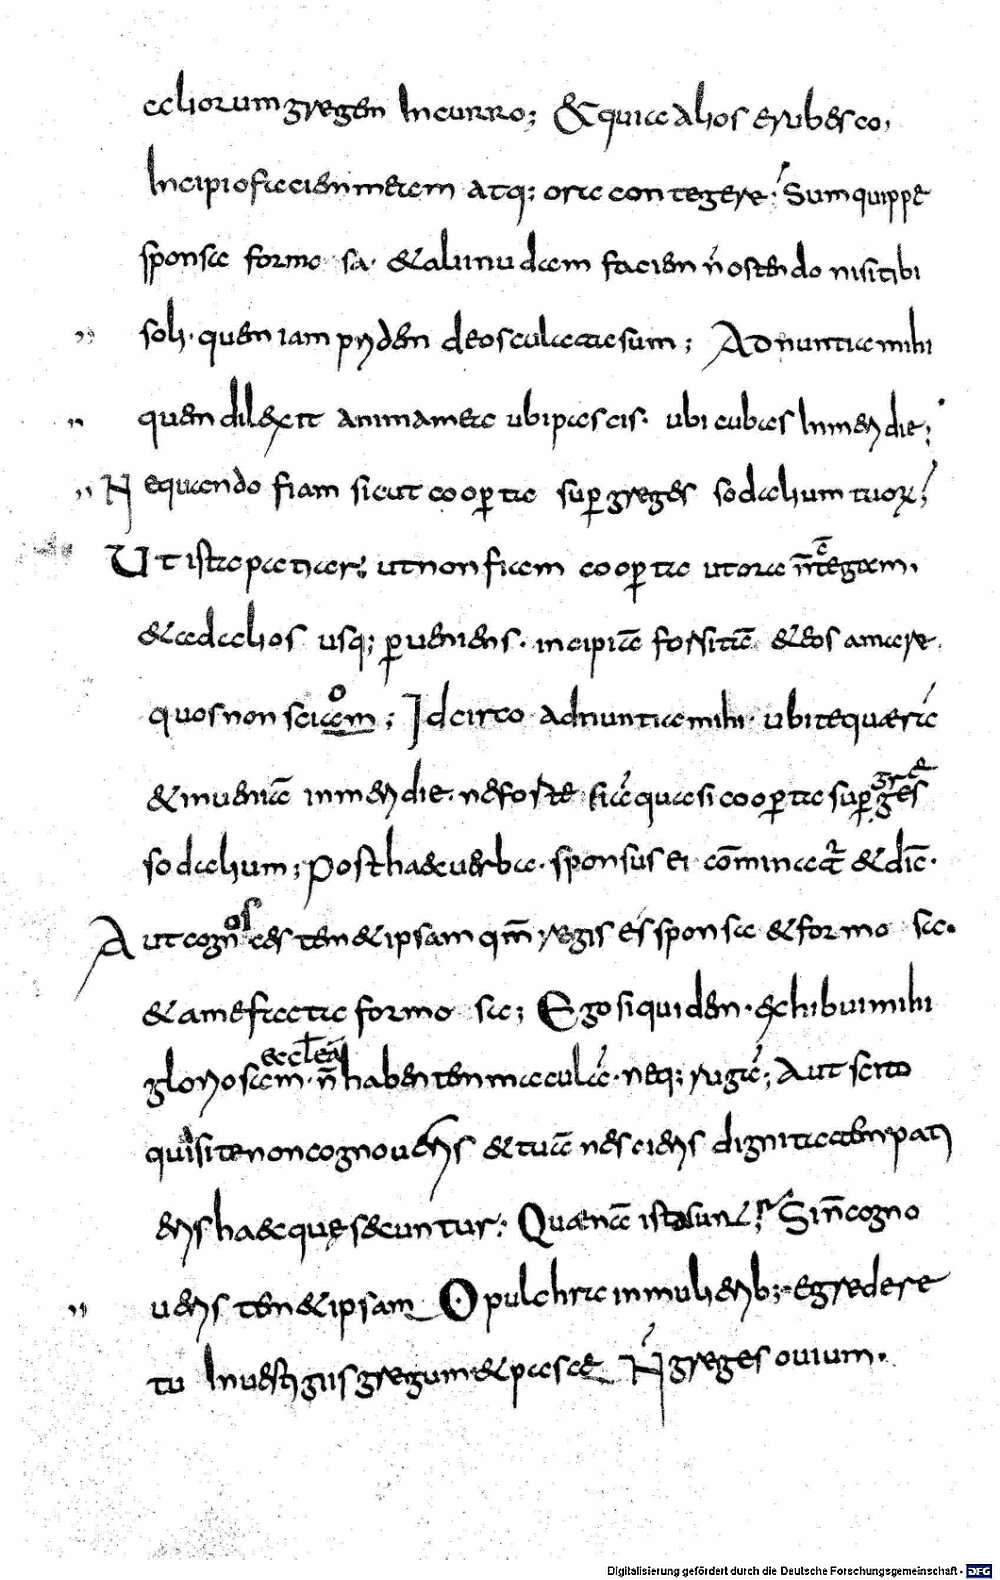 aliorum gregem incurro; & quia alios erubesco,
Incipio faciem meam atq; ora contegere; Sum quippe
sponsa formosa. & aliunu dam faciem n̄ ostendo nisi tibi
soli. quem iam pridem deosculata sum; Adnuntia mihi
quem dilexit anima mea ubi pascis. ubi cubas in meridie;
Nequando fiam sicut cooperta sup greges sodalium tuorū;
Ut ista patiar; ut non fiam cooperta ut ora n̄ tegam.
& ad alios usq; pueniens. incipiā forsitā & eos amare
quos non sciam; Idcirco adnuntia mihi. ubi te quaerā
& inueniā in meridie. ne forte fiā quasi cooperta sup greges
sodalium; Post haec uerba. sponsus ei cōminat̄ & dic̄.
Aut cognosces tem&ipsam qm̄ regis es sponsa & formosa.
& a me facta formosa; Ego siquidem. exhibui mihi
gloriosam. ecclēā n̄ habentem maculā. neq; rugā; Aut scito
quia si te non cognoueris & tuā nesciens dignitatem patieris
haec quę secuntur; Quaenā ista sunt; Si n̄ cogno
ueris tem&ipsam O pulchra in mulierib;. egredere
tu In uestigiis gregum. & pasce N̄ greges ouium.
Digitalisierung gefördert durch die Deutsche Forschungsgemeinschaft - DFG